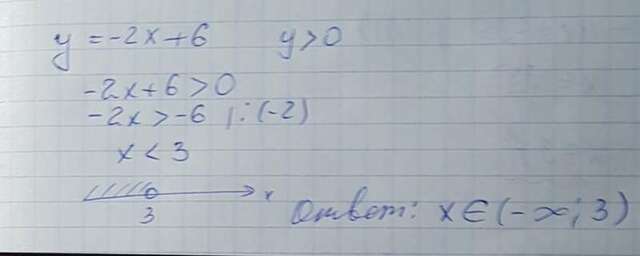 y = -2x+6 y>0
-2x+6>0
-2x>-6 |:(-2)
x < 3
x
3
Ответ: x∈(-∞; 3)